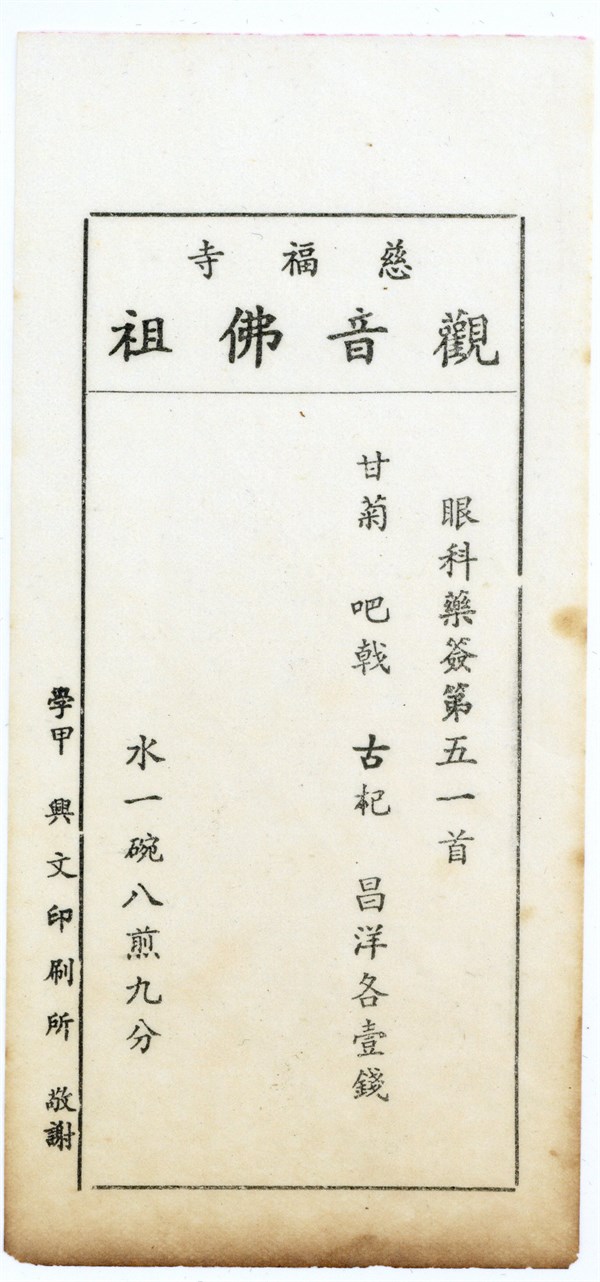 慈福寺
觀音佛祖
眼科藥簽第五一首
甘菊 吧戟 古杞 昌洋各壹錢
水一碗八煎九分
學甲 興文印刷所 敬謝